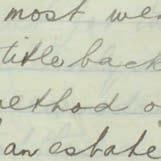 most we
title back
method o
an estate